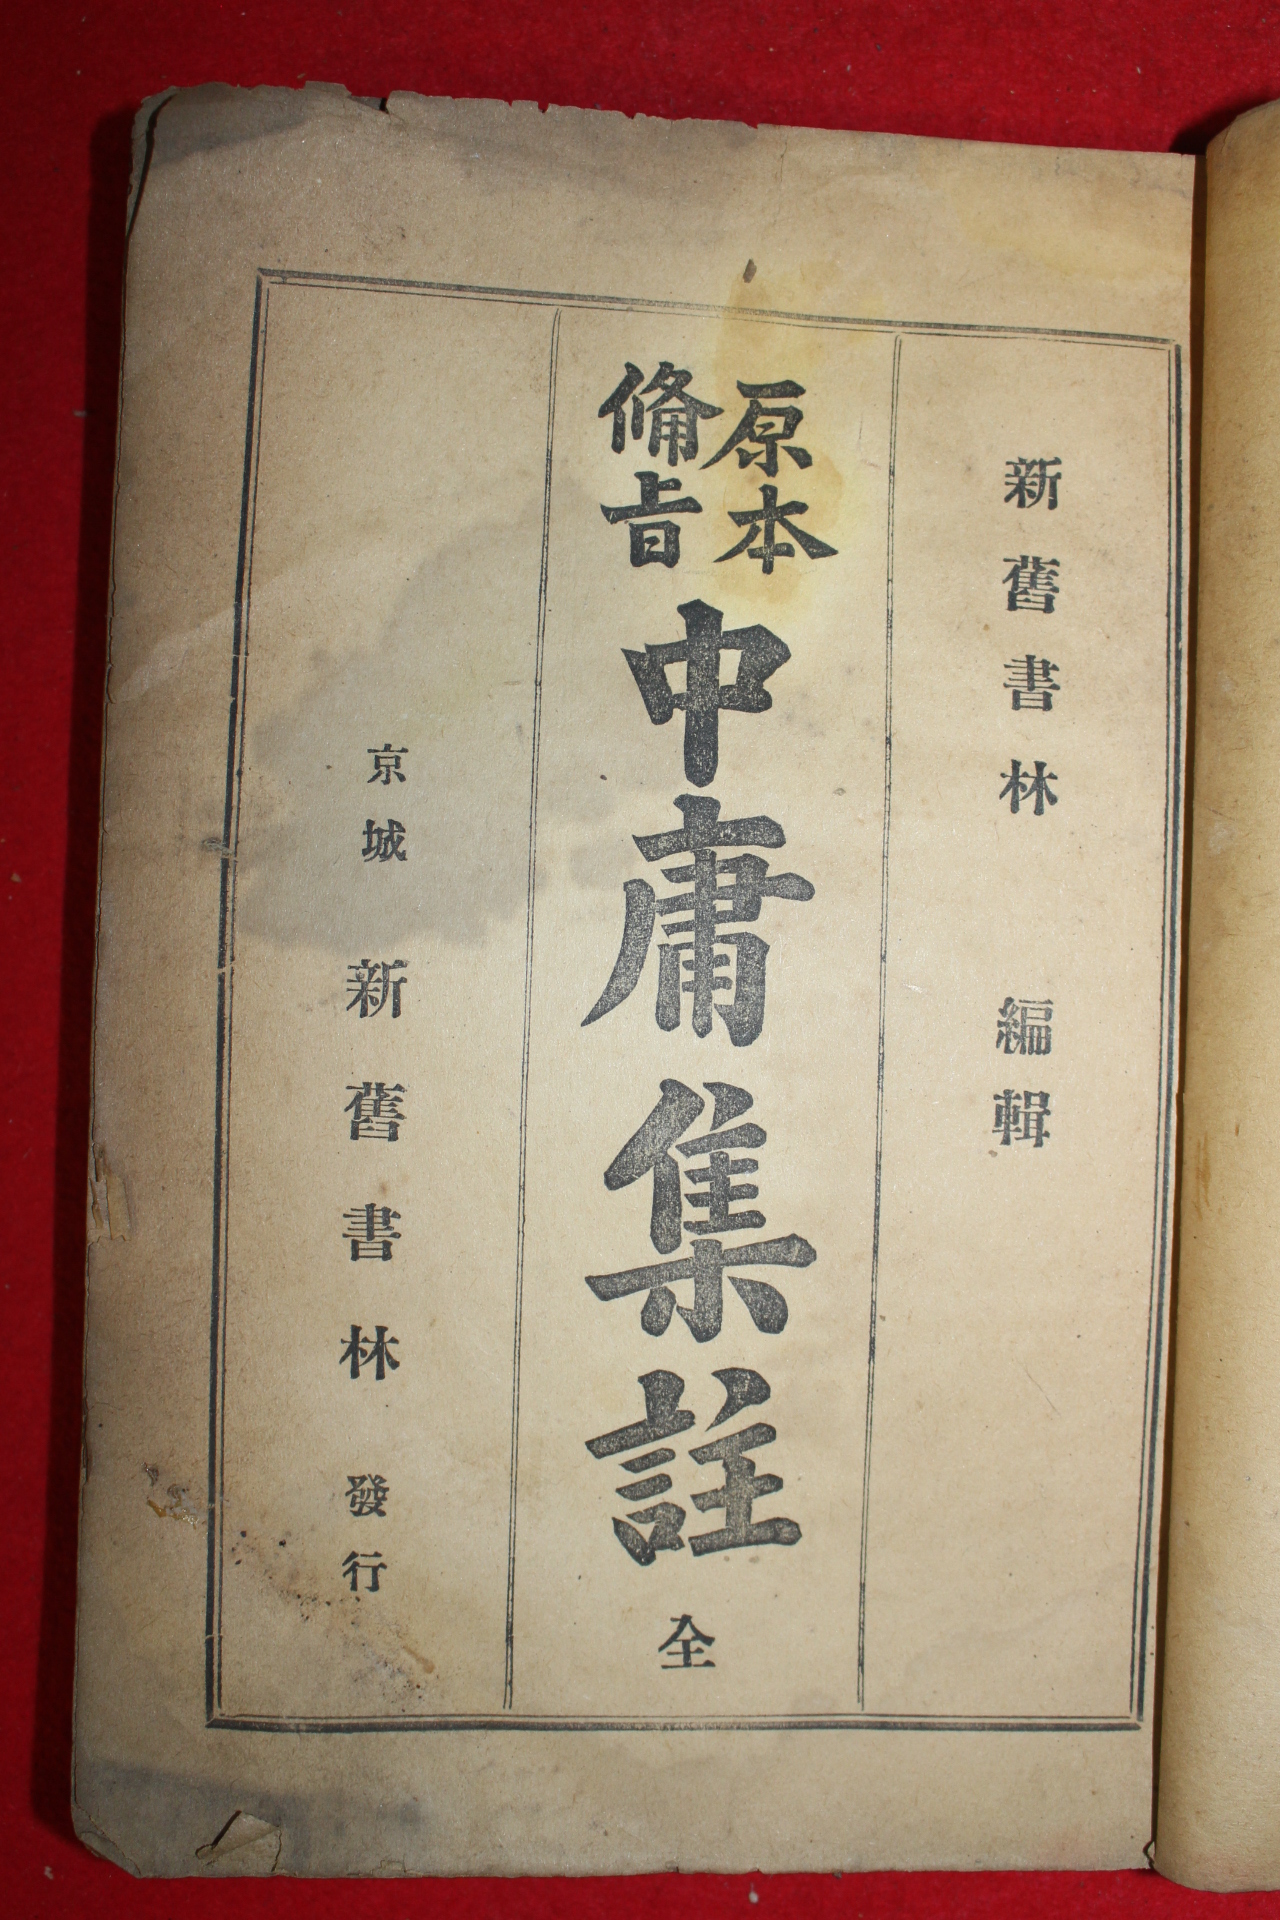 新舊書林 編輯
原本
備旨
中庸集註 全
京城 新舊書林 發行